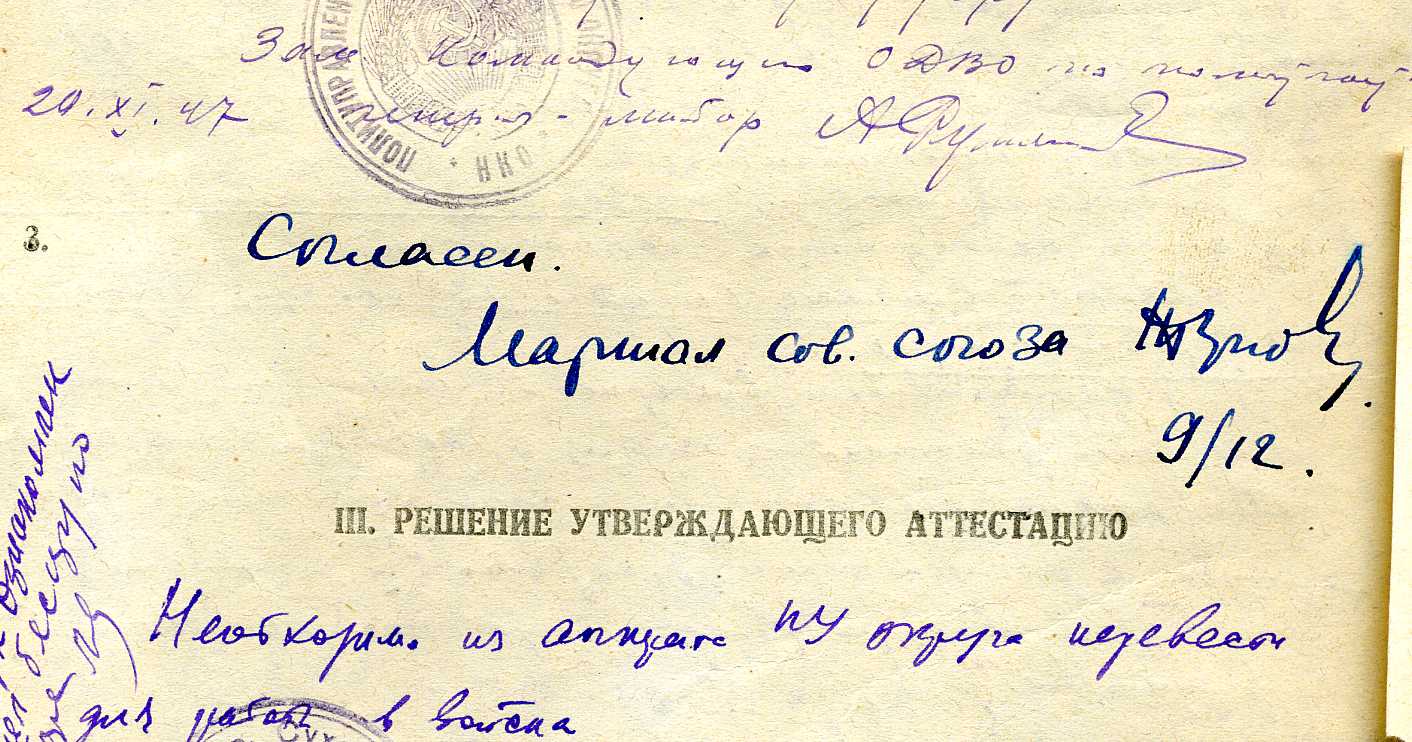 Зам Командующего ОДВО по политчасти
20.XI.47 генерал-майор
ПОЛИТУПРАВЛЕН
ННО
3. Согласен.
Маршал Сов. Союза Жуков
9/12.
III. РЕШЕНИЕ УТВЕРЖДАЮЩЕГО АТТЕСТАЦИЮ
Необходимо из аппарата ПУ округа перевести
для работы в войска
ознакомлен
беседу по